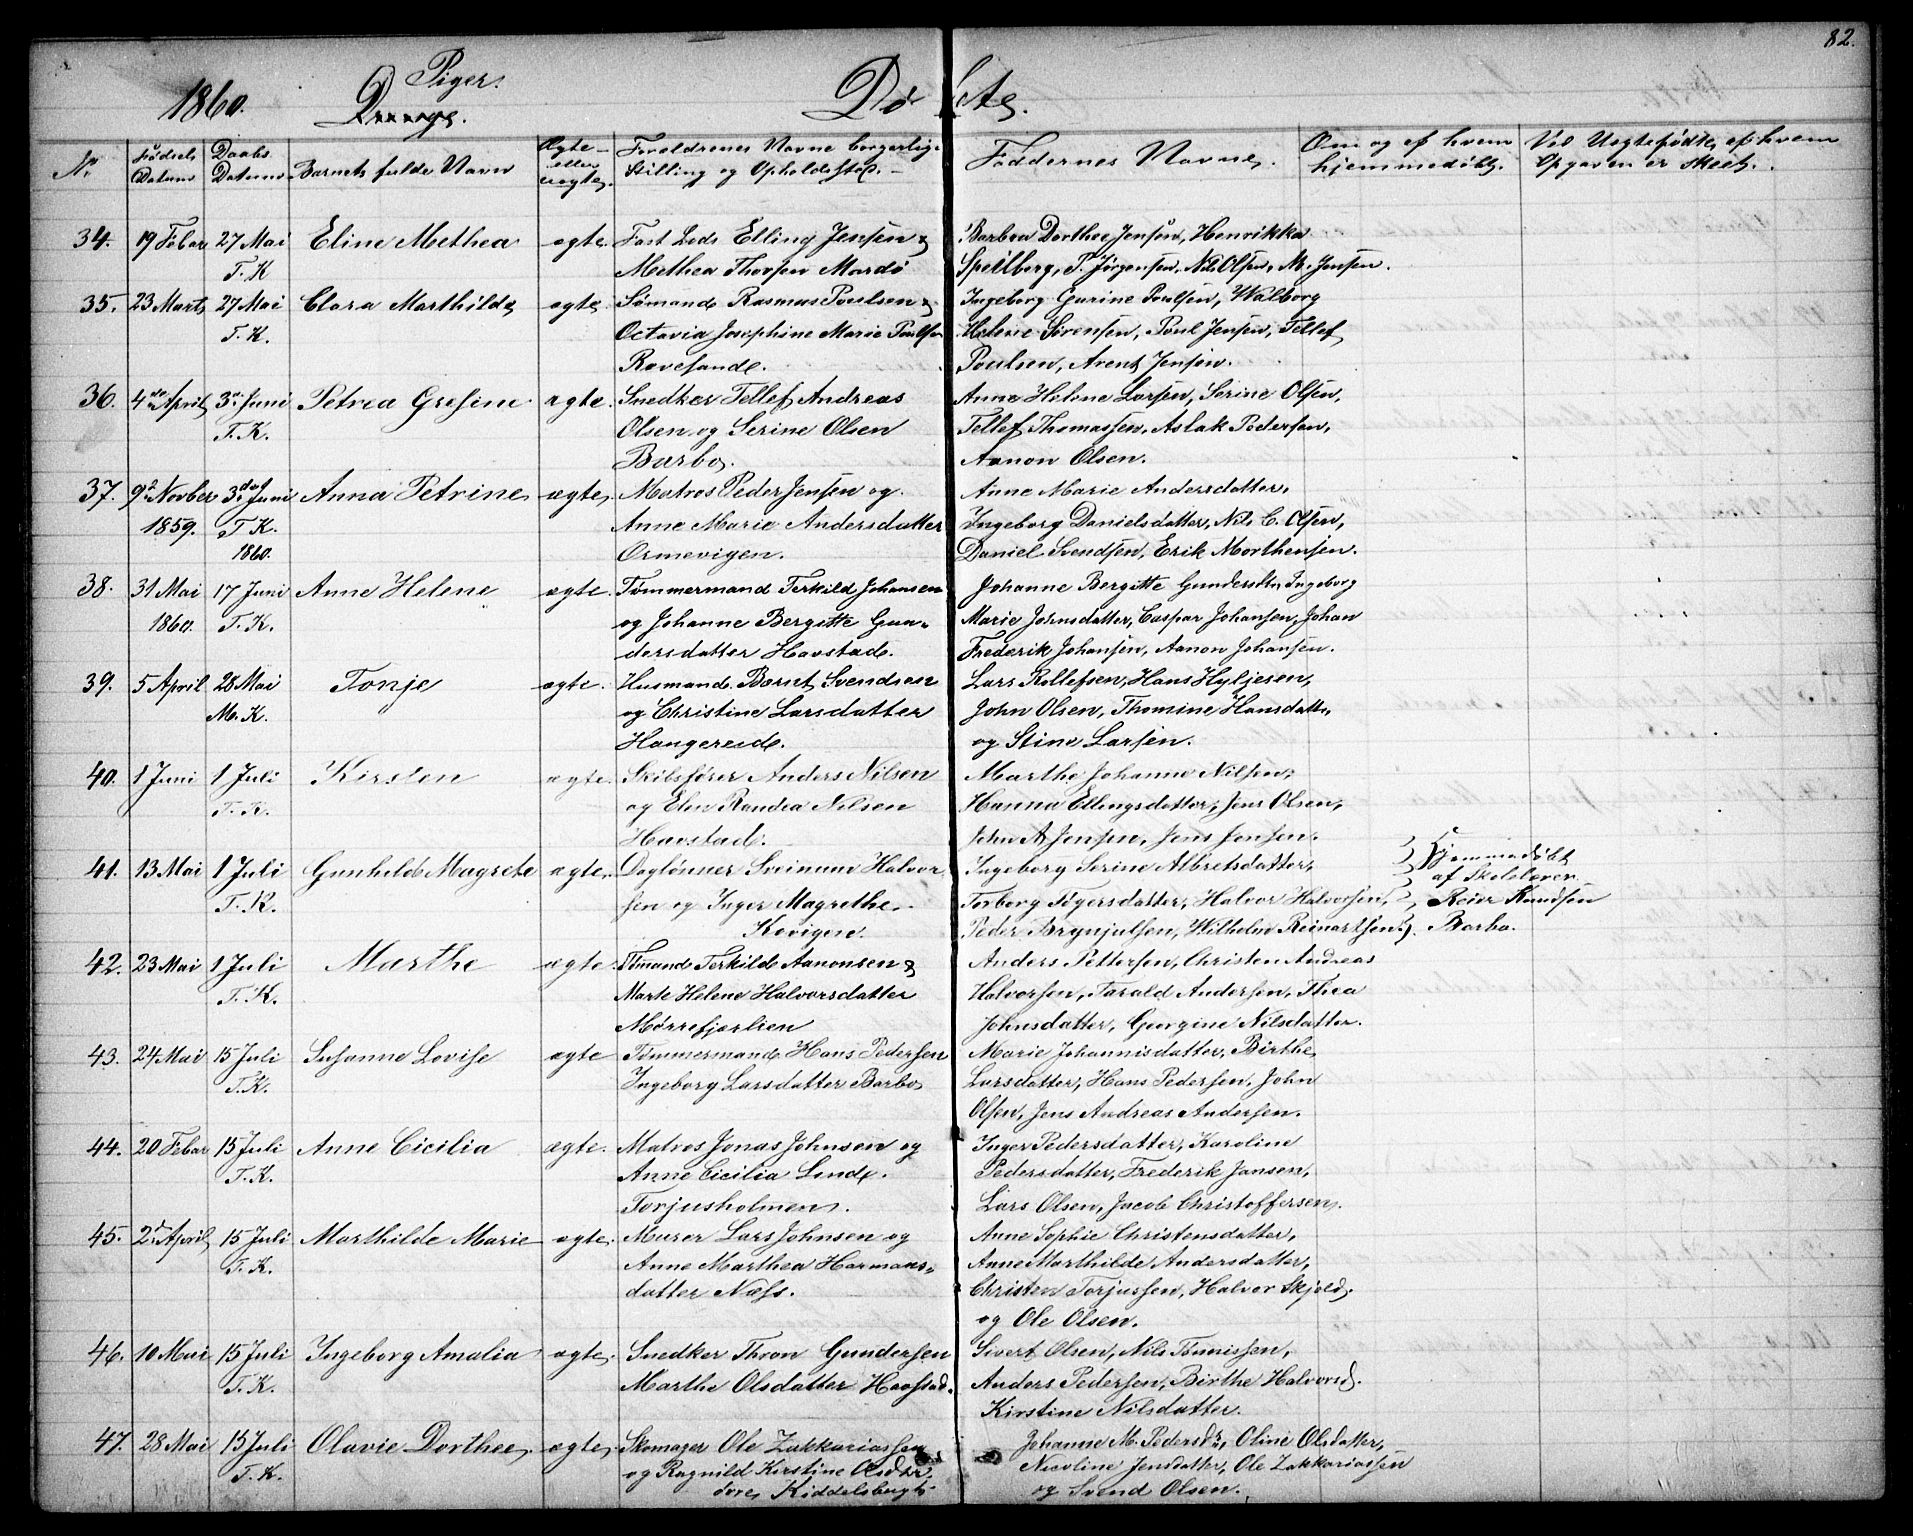 82.
1860. Piger. Døbte.
Drenge.
Nr. Fødsels Datum Daabs Datum Barnets fulde Navn Ægte eller uægte. Forældrenes Navne borgerlige Stilling og Opholdssted. Faddernes Navne. Om og af hvem hjemmedøbt. Ved Uægtefødte, af hvem Opgaven er skeet.
34. 19 Febar 27 Mai Eline Methea ægte. Fast Leds Elling Jensen & Barbra Dorthea Jensen, Henrikka
T. K Methea Thorsen Mardø Speilberg, P. Jørgensen, Nils Olsen, M. Jensen.
35. 23 Marts 27 Mai Clara Marthilde ægte. Sømand Rasmus Poulsen & Ingeborg Gurine Poulsen, Walborg
T. K. Octavia Josephine Marie Poulsen Helene Sørensen, Poul Jensen, Tellef
Rævesand. Poulsen, Arent Jensen.
36. 4de April 3die Juni Petrea Gresine ægte. Snedker Tellef Andreas Anne Helene Larsen, Serine Olsen,
T. K. Olsen og Serine Olsen Tellef Thomassen, Aslak Pedersen,
Barbo. Aanon Olsen.
37. 9de Novber 3die Juni Anna Petrine ægte. Matros Peder Jensen og Anne Marie Andersdatter,
1859. T. K. Anne Marie Andersdatter Ingeborg Danielsdatter, Nils C. Olsen,
1860. Ormevigen. Daniel Svendsen, Erik Morthensen.
38. 31 Mai 17 Juni Anne Helene ægte. Tømmermand Terkild Johansen Johanne Bergitte Gundersdtr, Ingeborg
1860. T. K. og Johanne Bergitte Gun- Marie Johnsdatter, Caspar Johansen, Johan
dersdatter Havstad. Frederik Johansen, Aanon Johansen.
39. 5 April 28 Mai Tonje ægte. Husmand Bernt Svendsen Lars Rollefsen, Hans Hyljesen,
M. K. og Christine Larsdatter John Olsen, Thomine Hansdatter
Hangereid. og Stine Larsen.
40. 1 Juni 1 Juli Kirsten ægte. Skibsfører Anders Nilsen Marthe Johanne Nilsen,
T. K. og Elen Randea Nilsen Hanna Ellingsdatter, Jens Olsen,
Havstad. John A Jensen, Jens Jensen.
41. 13 Mai 1 Juli Gunhilde Magrete ægte. Daglønner Sveinum Halvor Ingeborg Serine Albretsdatter, Hjemmedøbt
T. K. sen og Inger Magrethe Torborg Tøgersdatter, Halvor Halvorsen, af Skolelærer
Kovigen. Peder Brynjulsen, Wilhelm Reinartsen. Reier Knudsen
Barbo.
42. 23 Mai 1 Juli Marthe ægte. Tmand Terkild Aanonsen & Anders Pettersen, Christen Andreas
T. K. Marte Helene Halvorsdatter Halvorsen, Tarald Andersen, Thea
Mørrefjærlien Johnsdatter, Georgine Nilsdatter.
43. 24 Mai 15 Juli Susanne Lovise ægte Tømmermand Hans Pedersen Marie Johannisdatter, Birthe
T. K. Ingeborg Larsdatter Barbo Larsdatter, Hans Pedersen, John
Olsen, Jens Andreas Andersen.
44. 20 Febar 15 Juli Anne Cicilia ægte. Matros Jonas Johnsen og Inger Pedersdatter, Karoline
T. K. Anne Cicilia Lind. Pedersdatter, Frederik Jansen,
Torjusholmen. Lars Olsen, Jacob Christoffersen.
45. 2den April 15 Juli Marthilde Marie ægte. Murer Lars Johnsen og Anne Sophie Christensdatter,
T. K. Anne Marthea Hermans- Anne Marthilde Andersdatter,
datter Næss. Christen Torjussen, Halvor Skjold
og Ole Olsen.
46. 10 Mai 15 Juli Ingeborg Amalia ægte. Snedker Thron Gundersen Sivert Olsen, Nils Tønnissen,
T. K. Marthe Olsdatter Havstad. Anders Pedersen, Birthe Halvorsd.
Kirstine Nilsdatter.
47. 28 Mai 15 Juli Olavie Dorthea ægte. Skomager Ole Zakkariassen Johanne M. Pedersdr, Oline Olsdatter,
T. K. og Ragnild Kirstine Olsdtr Nicoline Jensdatter, Ole Zakkariassen
Kiddelsbugt og Svend Olsen.